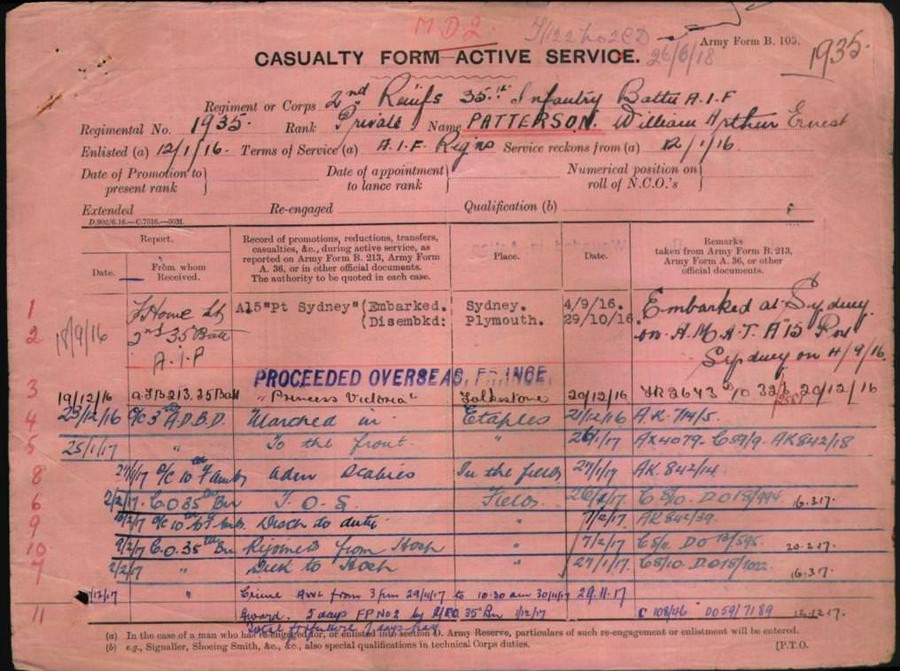 M.D.2
26/6/18
Army Form B. 103.
1935.
CASUALTY FORM—ACTIVE SERVICE.
Regiment or Corps 2nd Reinfs 35th Infantry Battn A.I.F
Regimental No. 1935. Rank Private Name PATTERSON. William Arthur Ernest
Enlisted (a) 12/1/16. Terms of Service (a) A.I.F. Regns Service reckons from (a) 12/1/16.
Date of Promotion to present rank } Date of appointment to lance rank } Numerical position on roll of N.C.O.'s }
Extended Re-engaged Qualification (b)
Report. Record of promotions, reductions, transfers, casualties, &c., during active service, as reported on Army Form B. 213, Army Form A. 36, or in other official documents. The authority to be quoted in each case. Place. Date. Remarks taken from Army Form B. 213, Army Form A. 36, or other official documents.
Date. From whom Received.
1 A15 "Pt Sydney" (Embarked. Sydney. 4/9/16. Embarked at Sydney
2 18/9/16 2nd 35 Batt (Disembkd: Plymouth. 29/10/16. on A.M.A.T. A 15 Port
A.I.F Sydney on 4/9/16
PROCEEDED OVERSEAS, FRANCE,
3 19/12/16 35 Batt "Princess Victoria" Folkestone 20/12/16 20/12/16
4 23/12/16 O/c 3rd A.D.B.D. Marched in Etaples 21/12/16 A.K. 714/5.
5 25/1/17 " To the front. " AX4079. AK842/18
8 O/C 10th F Amb adm Scabies In the field 27/1/17 AK.842/14
6 2/2/17. C.O 35th Bn T.O.S. Field. 16.3.17.
9 Disch to duty " 7/2/17. AK842/39.
10 9/2/17 C.O. 35th Bn Rejoined from Hosp " 7/2/17. 20.2.17.
7 2/2/17 " Sick to Hosp " 27/1/17. 16.3.17
/12/17 " Crime AWL from 3 pm 29/11/17 to 10.30 am 30/11/17 29.11.17
11 Award. 5 days FP No 2 by C/O 35 Bn 1/12/17 DO59/7189 12.12.17.
Total forfeiture 7 days pay
(a) In the case of a man who has re-engaged for, or enlisted into section D. Army Reserve, particulars of such re-engagement or enlistment will be entered.
(b) e.g., Signaller, Shoeing Smith, &c., &c., also special qualifications in technical Corps duties. [P.T.O.